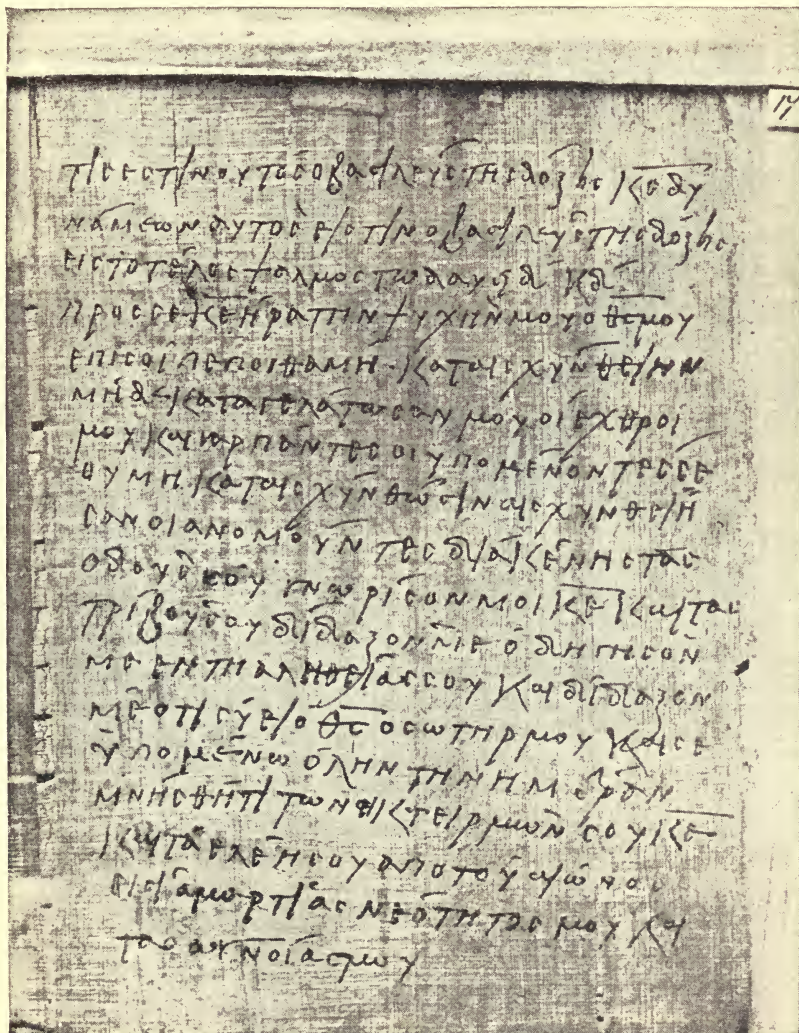 17
τις εστιν ουτος ο βασιλευς της δοξης κ̅ς̅ δυ
ναμεων αυτος εστιν ο βασιλευς της δοξης
εις το τελος ψαλμος τω δαυιδ κδ
προς σε κ̅ε̅ ηρα την ψυχην μου ο θ̅ς̅ μου
επι σοι πεποιθα μη καταισχυνθειην
μηδε καταγελατωσαν μου οι εχθροι
μου και γαρ παντες οι υπομενοντες σε
ου μη καταισχυνθωσιν αισχυνθειη
σαν οι ανομουντες δια κενης τας
οδους σου γνωρισον μοι κ̅ε̅ και τας
τριβους σου διδαξον με οδηγησον
με εν τη αληθειας σου και διδαξον
με οτι συ ει ο θ̅ς̅ ο σωτηρ μου και σε
υπομενω ολην την ημεραν
μνησθητι των οικτειρμων σου κ̅ε̅
και τα ελεη σου απο του αιωνος
εισι αμαρτιας νεοτητος μου και
τας αγνοιας μου